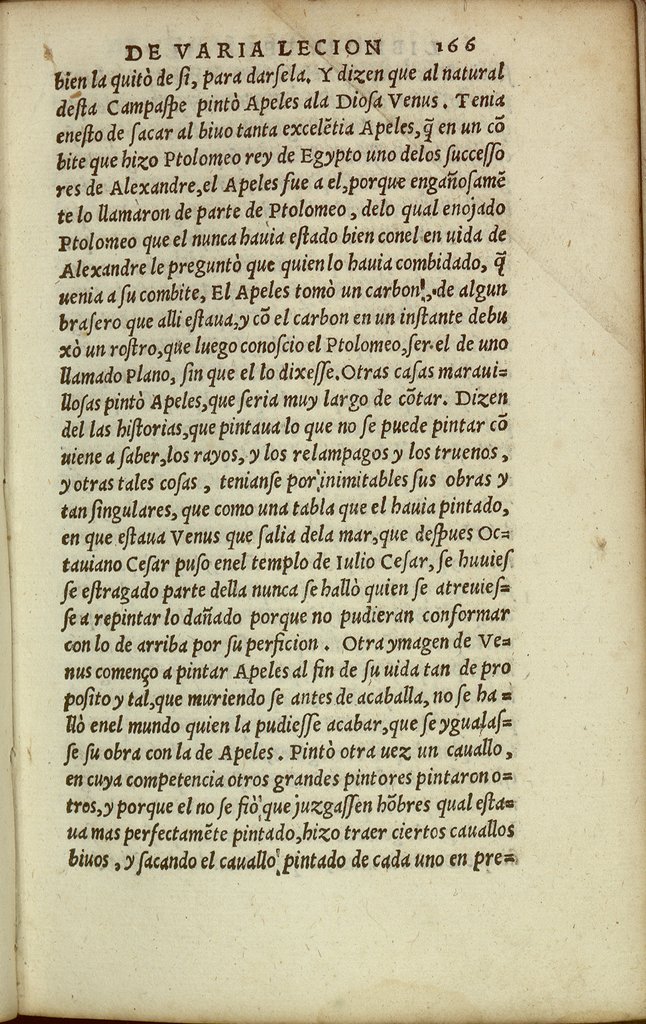 DE VARIA LECION 166
bien la quitò de ſi, para darſela. Y dizen que al natural
deſta Campaſpe pintò Apeles ala Dioſa Venus. Tenia
eneſto de ſacar al biuo tanta excelẽtia Apeles, q̃ en un cõ
bite que hizo Ptolomeo rey de Egypto uno delos ſucceſſo
res de Alexandre, el Apeles fue a el, porque engañoſamẽ
te lo llamaron de parte de Ptolomeo, delo qual enojado
Ptolomeo que el nunca hauia eſtado bien conel en uida de
Alexandre le preguntò que quien lo hauia combidado, q̃
uenia a ſu combite, El Apeles tomò un carbon, de algun
braſero que alli eſtaua, y cõ el carbon en un inſtante debu
xò un roſtro, que luego conoſcio el Ptolomeo, ſer el de uno
llamado Plano, ſin que el lo dixeſſe. Otras caſas maraui=
lloſas pintò Apeles, que ſeria muy largo de cõtar. Dizen
del las hiſtorias, que pintaua lo que no ſe puede pintar cõ
uiene a ſaber, los rayos, y los relampagos y los truenos,
y otras tales coſas, tenianſe por inimitables ſus obras y
tan ſingulares, que como una tabla que el hauia pintado,
en que eſtaua Venus que ſalia dela mar, que deſpues Oc=
tauiano Ceſar puſo enel templo de Iulio Ceſar, ſe huuieſ
ſe eſtragado parte della nunca ſe hallò quien ſe atreuieſ=
ſe a repintar lo dañado porque no pudieran conformar
con lo de arriba por ſu perficion. Otra ymagen de Ve=
nus començo a pintar Apeles al fin de ſu uida tan de pro
poſito y tal, que muriendo ſe antes de acaballa, no ſe ha=
llò enel mundo quien la pudieſſe acabar, que ſe ygualaſ=
ſe ſu obra con la de Apeles. Pintò otra uez un cauallo,
en cuya competencia otros grandes pintores pintaron o=
tros, y porque el no ſe fiò que juzgaſſen hõbres qual eſta=
ua mas perfectamẽte pintado, hizo traer ciertos cauallos
biuos, y ſacando el cauallo pintado de cada uno en pre=